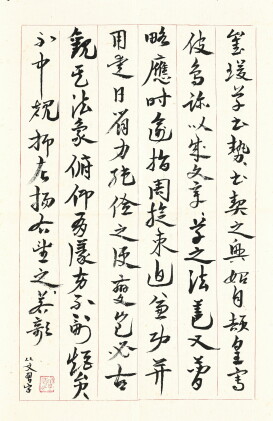 崔瑗草書勢書契之興始自頡皇寫
彼鳥跡以定文章草之法蓋又簡
略應時諭指周旋卒迫兼功并
用愛日省力純儉之變豈必古
觀其法象俯仰有儀方不副矩員
不中規抑左揚右望之若欹
文習字